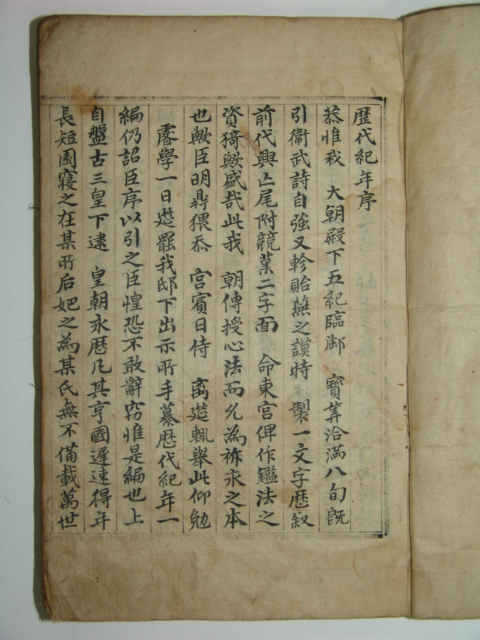 歷代紀年序
恭惟我 大朝殿下五紀臨御 寶筭洽滿八旬旣
引衛武詩自強又軫貽燕之謨特 製一文字歷叙
前代興亡尾附競業二字面 命東宮俾作鑑法之
資猗歟盛哉此我 朝傳授心法而允為祈永之本
也歟臣明鼎猥忝 宮賓日侍 离筵輒擧此仰勉
睿學一日筵罷我邸下出示所手纂歷代紀年一
編仍詔臣序以引之臣惶恐不敢辭竊惟是編也上
自盤古三皇下逮 皇朝永曆凡其享國遲速得年
長短園寢之在某所后妃之為某氏無不備載萬世